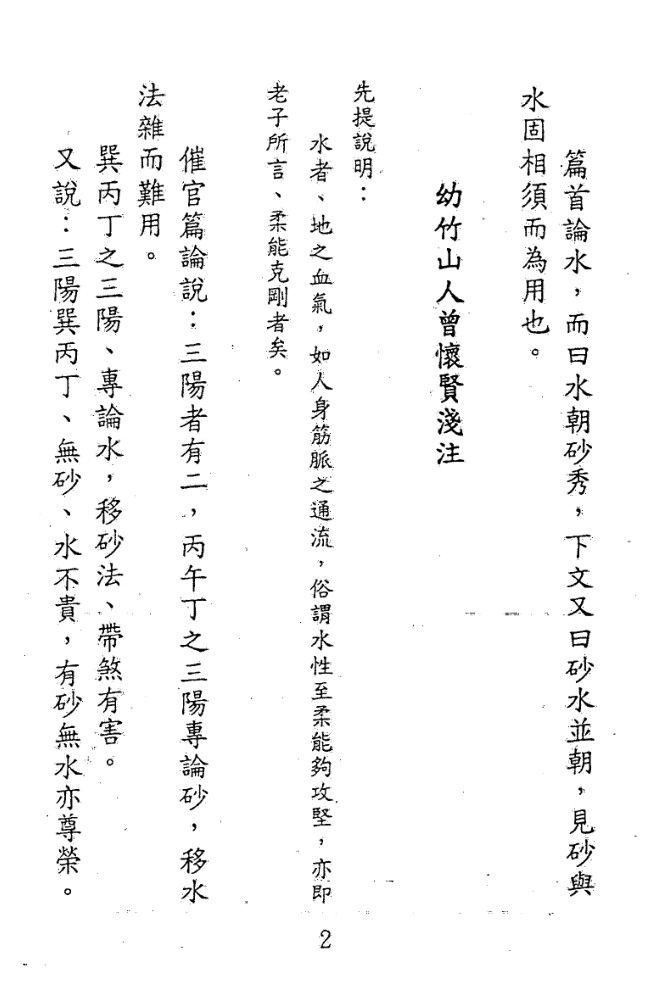 篇首論水，而曰水朝砂秀，下文又曰砂水並朝，見砂與
水固相須而為用也。
幼竹山人曾懷賢淺注
先提說明：
水者、地之血氣，如人身筋脈之通流，俗謂水性至柔能夠攻堅，亦即
老子所言、柔能克剛者矣。
催官篇論說：三陽者有二，丙午丁之三陽專論砂，移水
法雜而難用。
巽丙丁之三陽、專論水，移砂法、帶煞有害。
又說：三陽巽丙丁、無砂、水不貴，有砂無水亦尊榮。
2